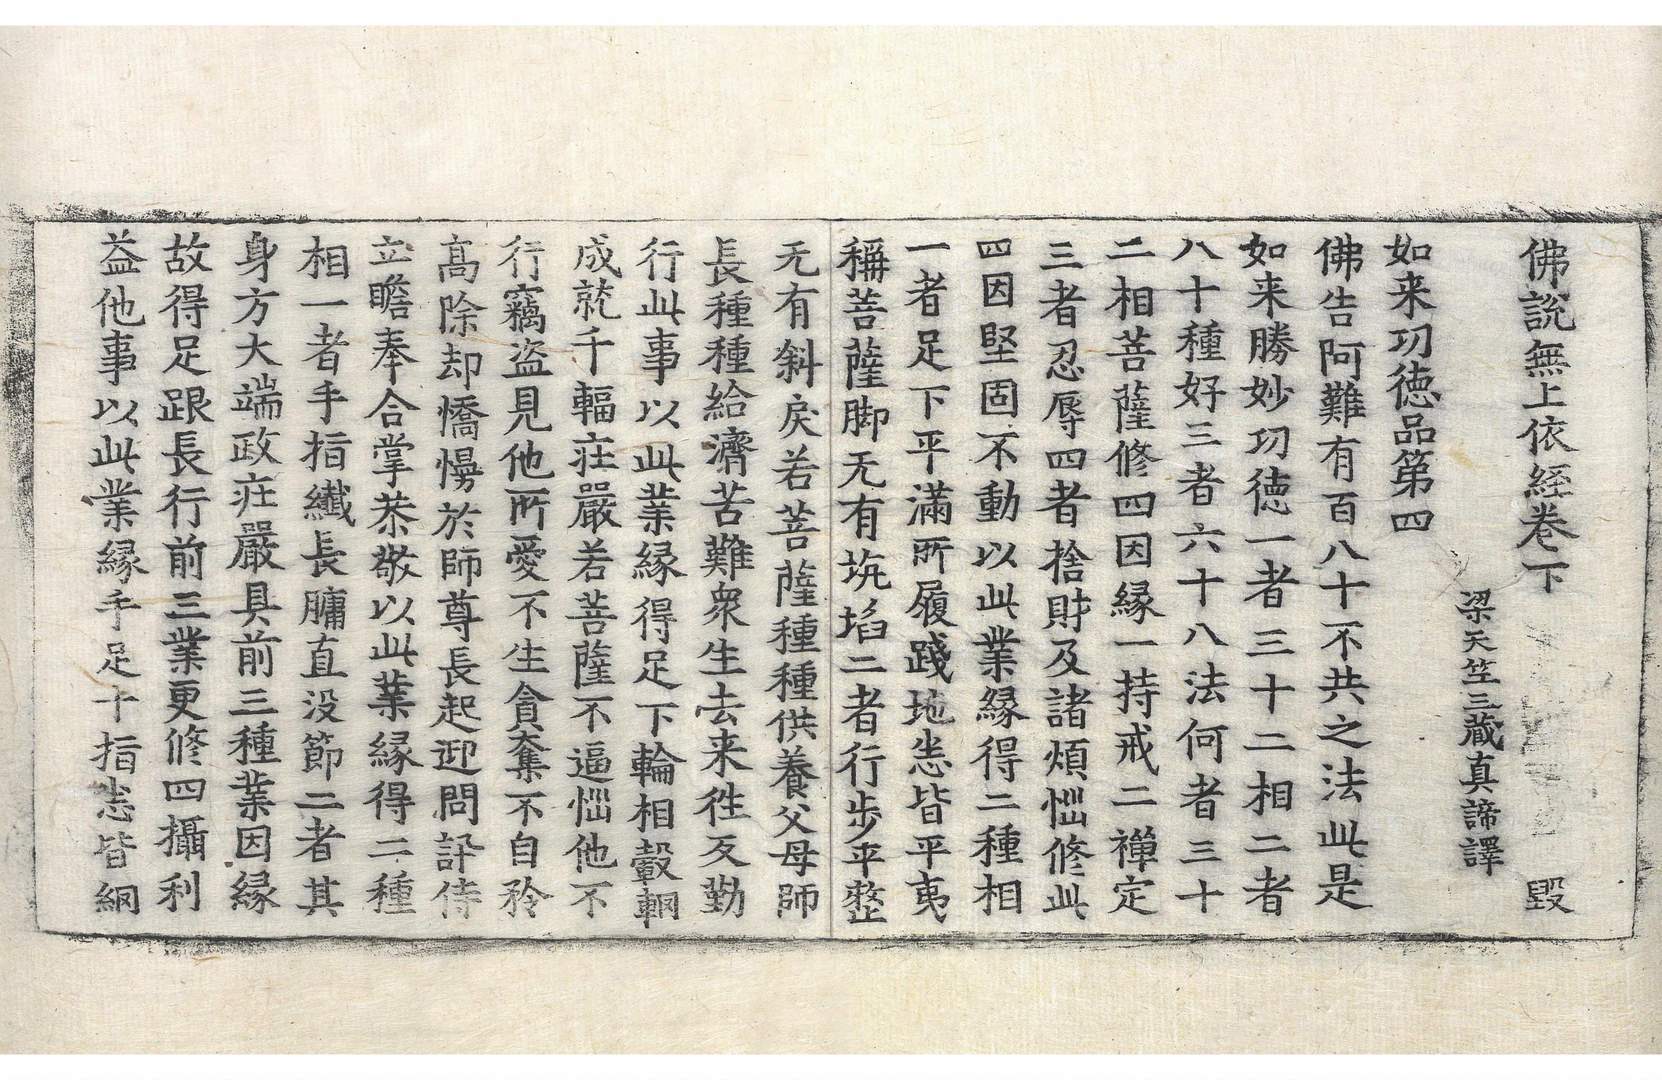 佛說無上依經卷下 毀
梁天竺三藏真諦譯
如来功德品第四
佛告阿難有百八十不共之法此是
如来勝妙功德一者三十二相二者
八十種好三者六十八法何者三十
二相菩薩修四因緣一持戒二禪定
三者忍辱四者捨財及諸煩惱修此
四因堅固不動以此業緣得二種相
一者足下平滿所履踐地恙皆平夷
稱菩薩脚无有坑埳二者行步平整
无有斜戾若菩薩種種供養父母師
長種種給濟苦難衆生去来徃反勤
行此事以此業緣得足下輪相轂輞
成就千輻莊嚴若菩薩不逼惱他不
行竊盜見他所愛不生貪奪不自矜
髙除却憍慢於師尊長起迎問訊侍
立瞻奉合掌恭敬以此業緣得二種
相一者手指纖長𦟛直没節二者其
身方大端政莊嚴具前三種業因緣
故得足跟長行前三業更修四攝利
益他事以此業緣手足十指恙皆網